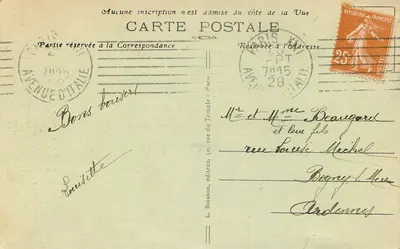 Aucune inscription n'est admise du côté de la Vue
CARTE POSTALE
Partie réservée à la Correspondance
Réservée à l'Adresse
PARIS XIII
7H45
28
AVENUE D'ITALIE
PARIS XIII
7H45
28
AVENUE D'ITALIE
REPUBLIQUE FRANÇAISE
25c
Bons baisers
Louisette
L. Buisson, éditeur, rue du Temple, Paris
Mr et Mme Beaugard
et leur fils
rue Louise Michel
Bogny s. Meuse
Ardennes